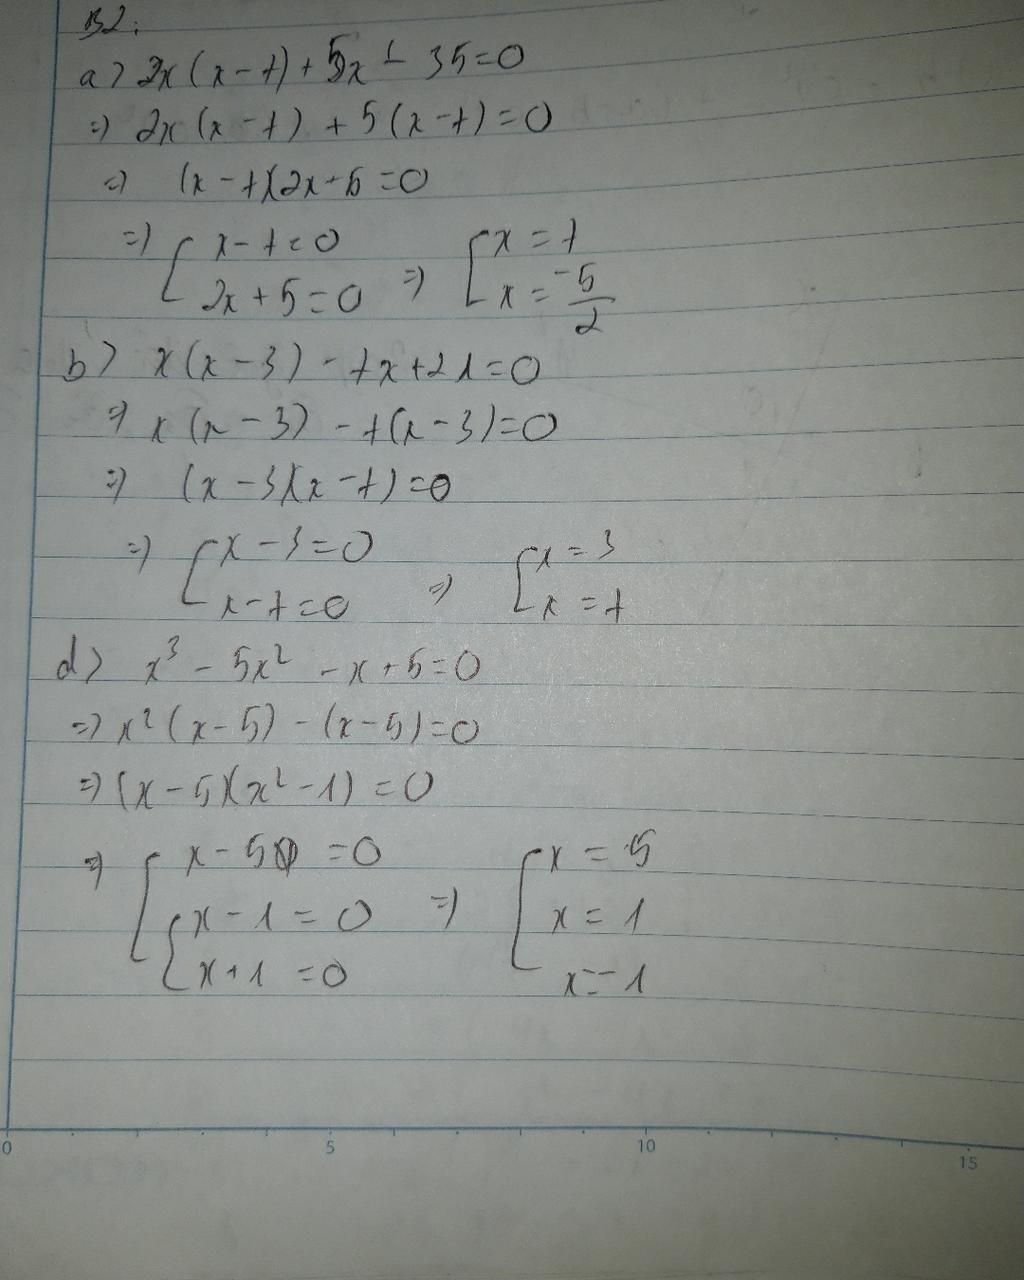 B2:
a> 2x(x-7)+5x-35=0
=> 2x(x-7)+5(x-7)=0
=> (x-7)(2x+5=0
=> [ x-7=0 2x+5=0 => [ x=7 x=-5/2
b> x(x-3)-7x+21=0
=> x(x-3)-7(x-3)=0
=> (x-3)(x-7)=0
=> [ x-3=0 x-7=0 => [ x=3 x=7
d> x³-5x²-x+5=0
=> x²(x-5)-(x-5)=0
=> (x-5)(x²-1)=0
=> [ x-5=0 [ x-1=0 x+1=0 => [ x=5 x=1 x=-1
0 5 10 15